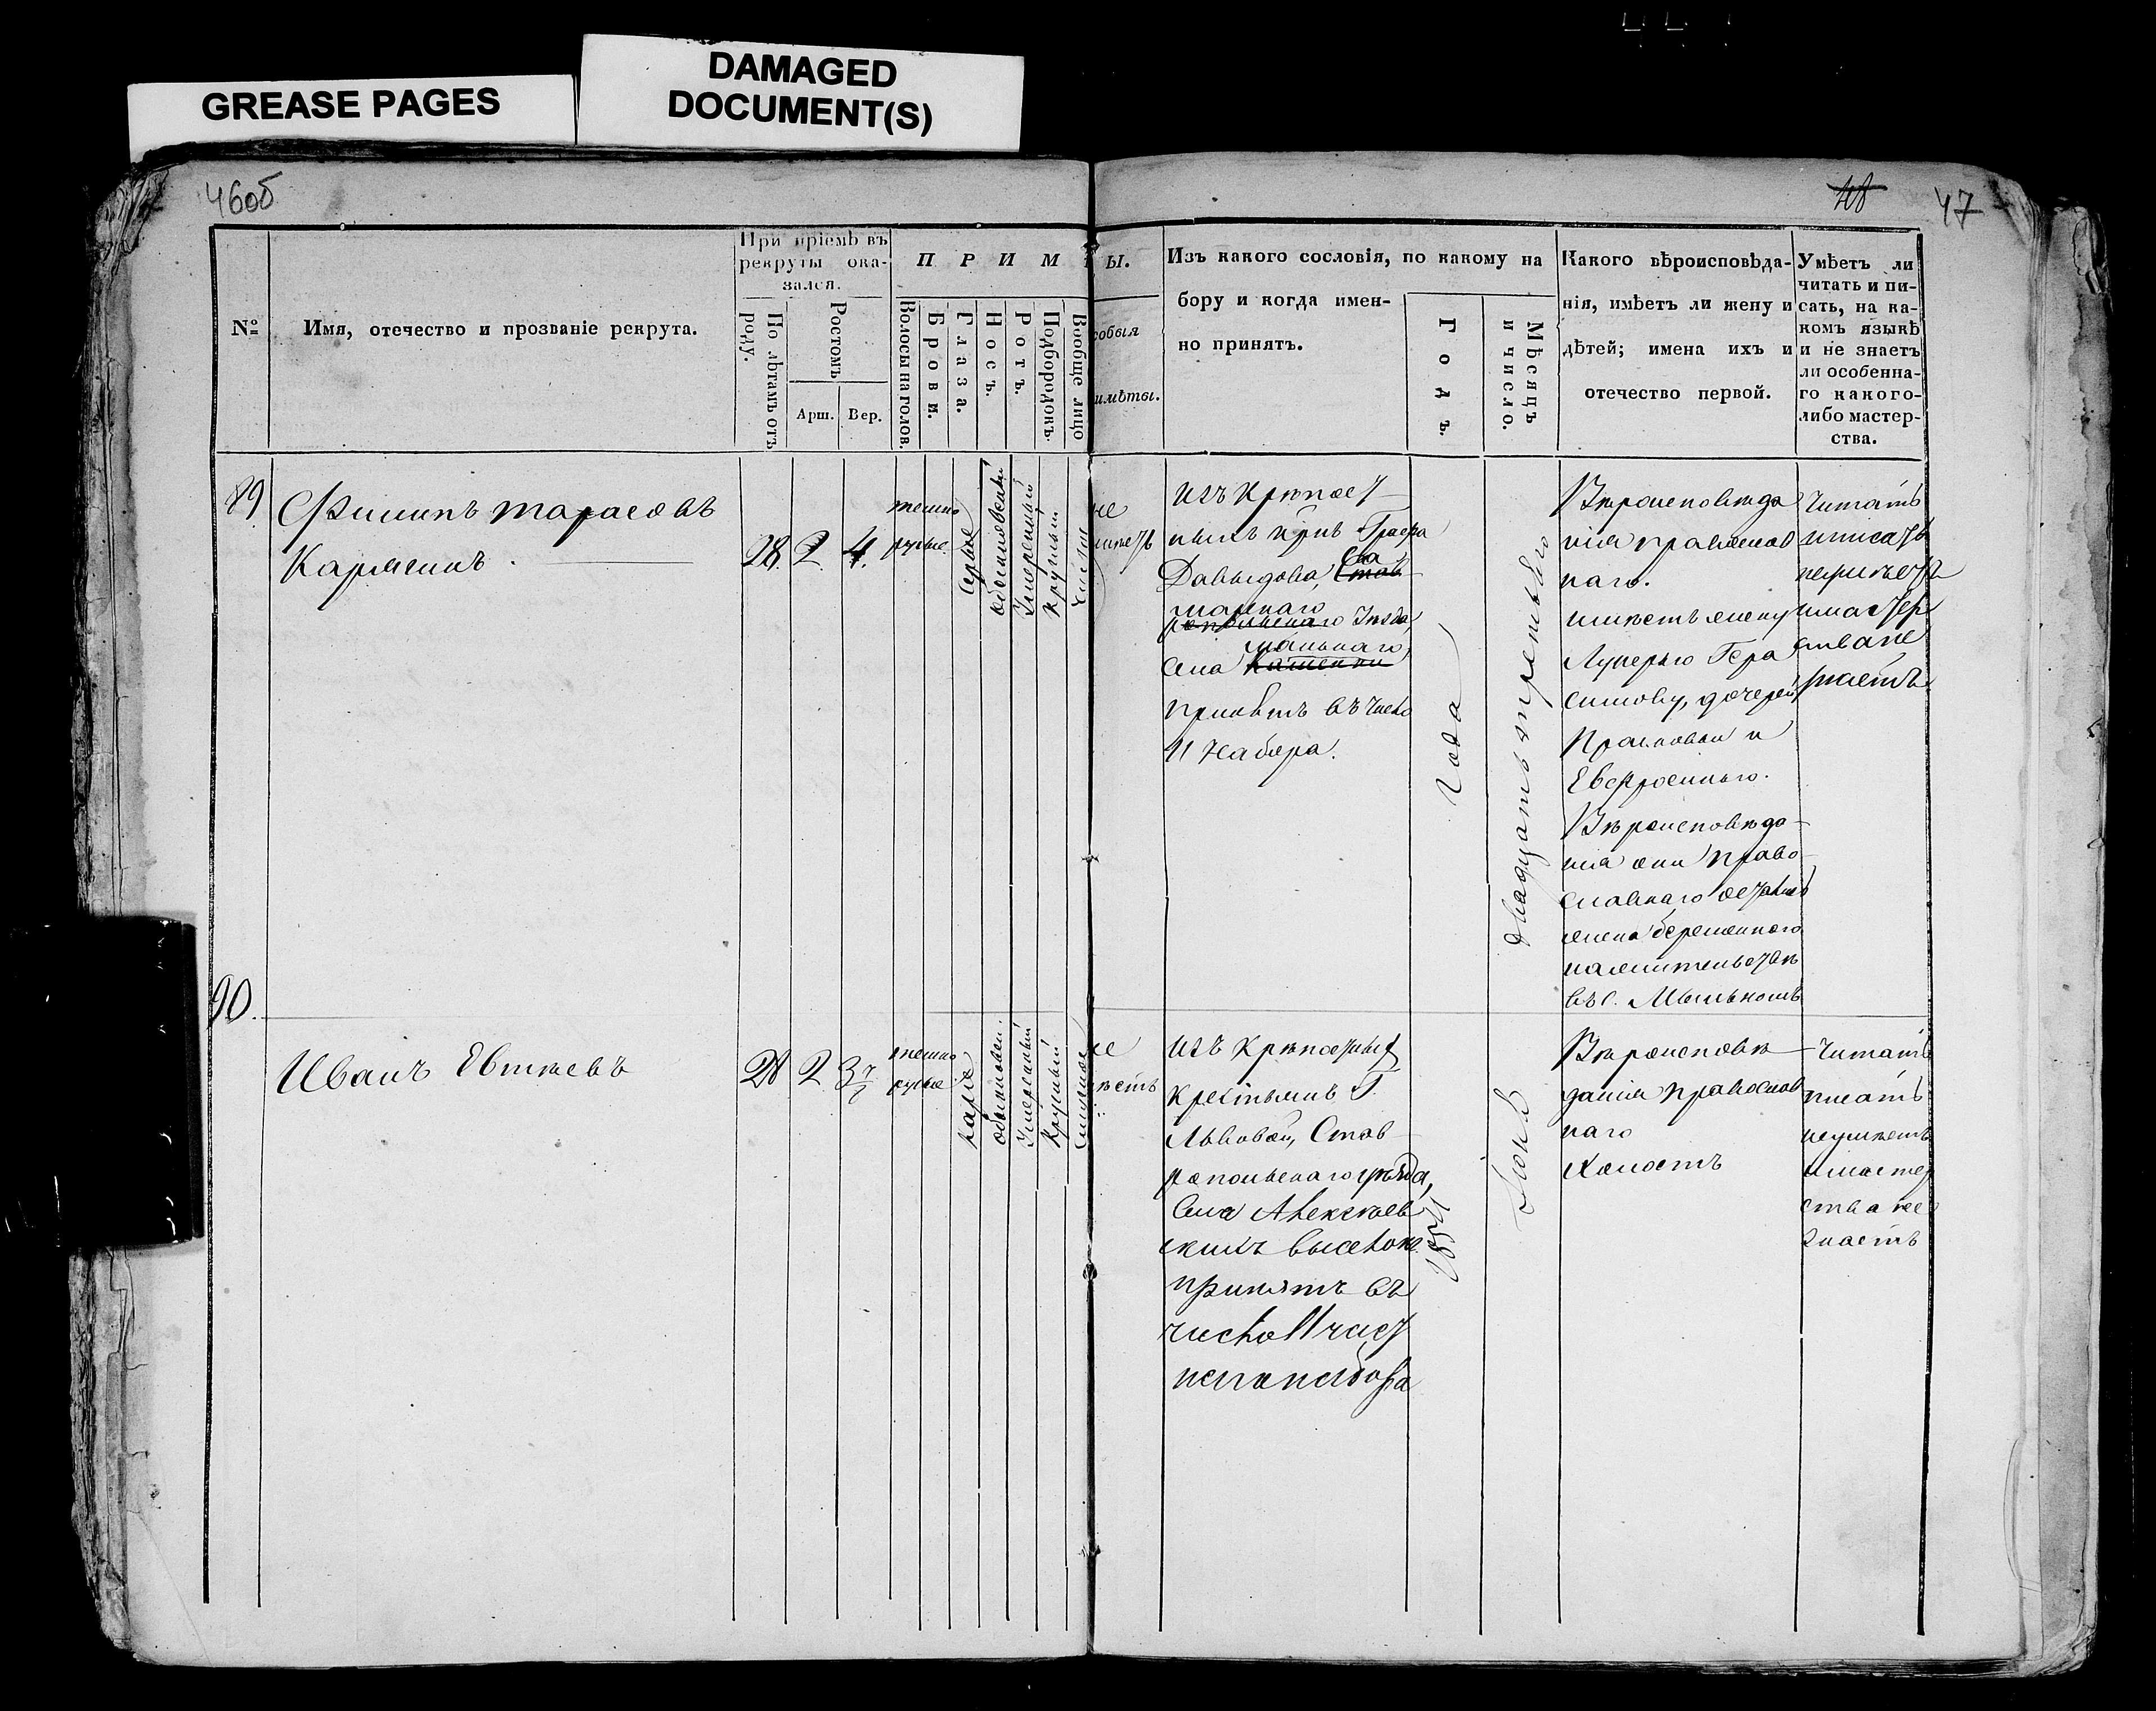 GREASE PAGES
DAMAGED
DOCUMENT(S)
46об
48
47
№
Имя, отечество и прозваніе рекрута.
При пріемѣ въ
рекруты ока-
зался.
По лѣтамъ отъ
роду.
Ростомъ
Арш.
Вер.
П Р И М
Ы.
Волосы на голов.
Брови.
Глаза.
Носъ.
Ротъ.
Подбородокъ.
Вообще лицо
собыя
имѣты.
Изъ какого сословія, по какому на
бору и когда имен-
но принятъ.
Годъ.
Мѣсяцъ
и число.
Какого вѣроисповѣда-
нія, имѣетъ ли жену и
дѣтей; имена ихъ и
отечество первой.
Умѣетъ ли
читать и пи-
сать, на ка-
комъ языкѣ
и не знаетъ
ли особенна-
го какого-
либо мастер-
ства.
89
Филипъ Тарасовъ
28. 2. 4.
темно
русые
Серые
обыкновенный
Умеренный
Круглый
не
имеетъ
Изъ крѣпост
ныхъ
Давыдова,
Уѣзда,
Села
принятъ въ число
11 набора.
Вѣроисповѣда
нія православ
наго.
имѣетъ жену
Лукерью Гера
симову, дочерей
Прасковью и
Евфросинью.
Вѣроисповѣда-
нія они право
славнаго осталась
жена беременного
на жительстве
въ с.
Читать
и писать
неумѣетъ
и мастер
ства не
знаетъ.
90.
Иванъ Евтѣевъ
28 2 3
темно
русые
Карие
обыкновен.
Умеренный
Круглый
не
ѣетъ
Изъ крѣпостныхъ
крестьянъ Г.
Львовой, Став
ропольскаго уѣзда,
Села Алексѣев
скихъ выселокъ
принятъ въ
число 11 част
наго набора
1854
года
Июня
двадцать третьяго
Вѣроисповѣ
данія православ
наго
Холостъ
Читать
писать
неумѣетъ
и мастер
ства не
знаетъ